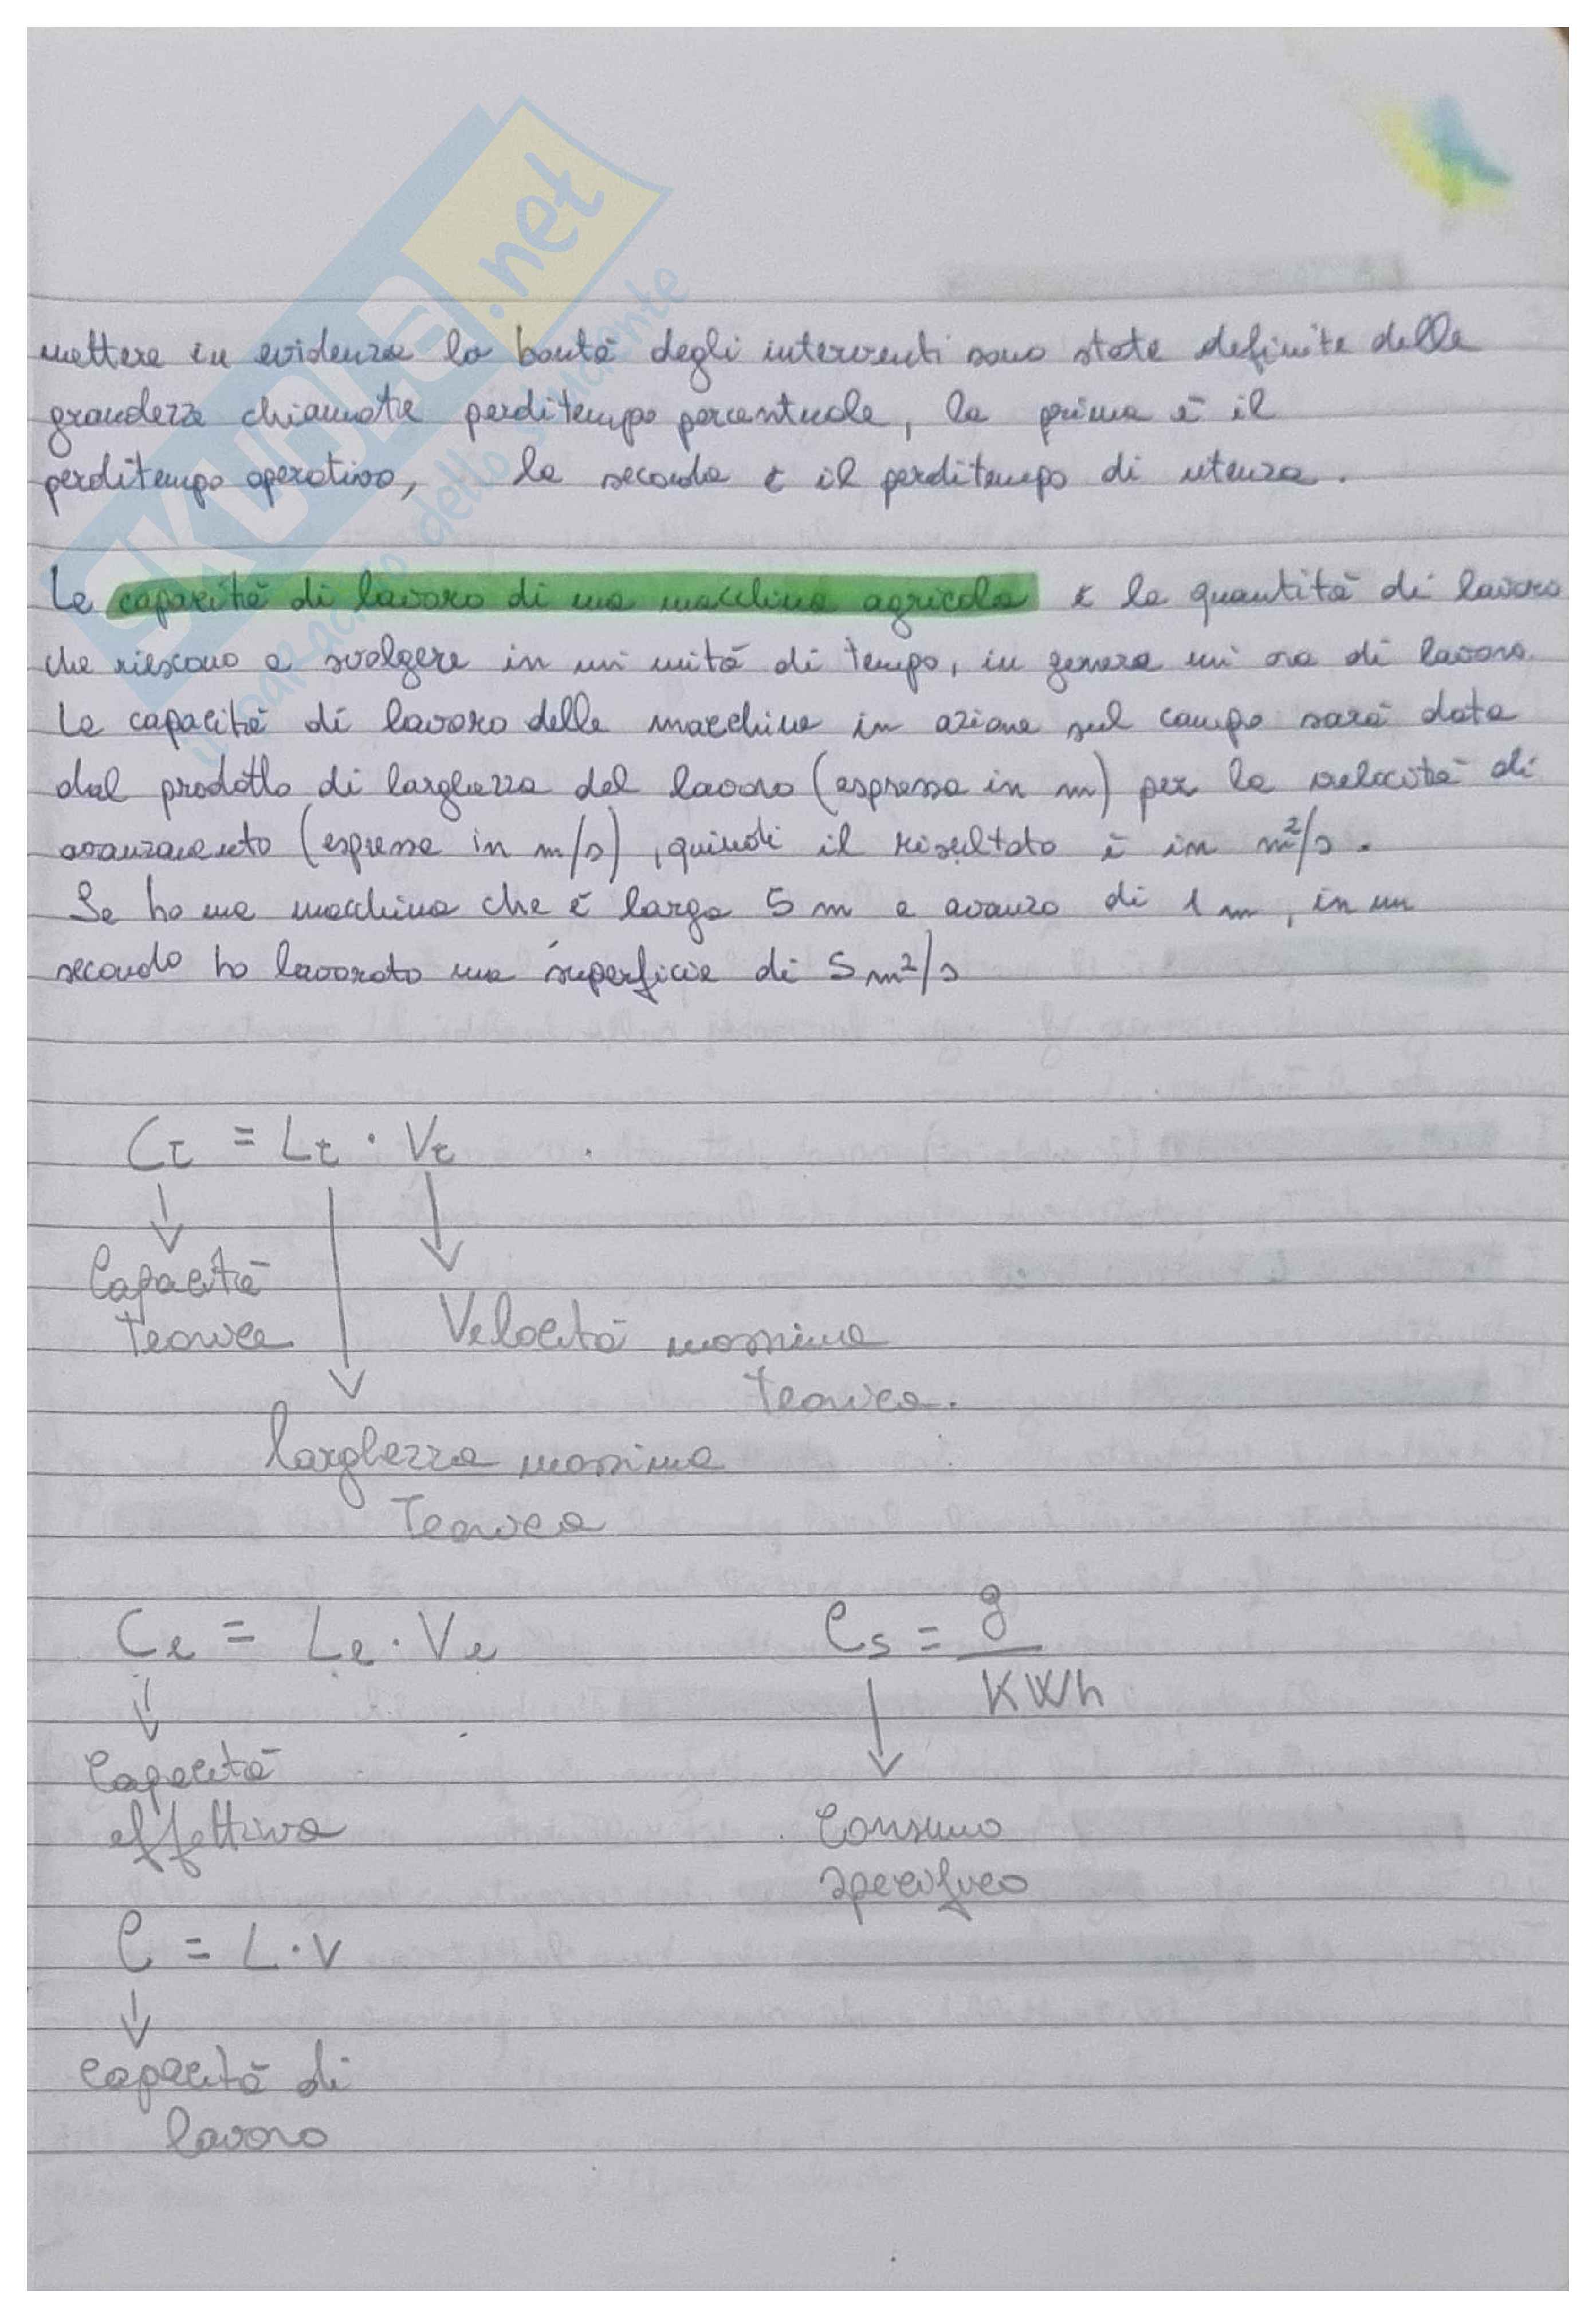 SKUOLA.net
un paracadio detto sinante
mettere in evidenza la bontà degli interventi sono state definite delle
grandezze chiamate perditempo percentuale, la prima è il
perditempo operativo, la seconda è il perditempo di utenza.
La capacità di lavoro di una macchina agricola è la quantità di lavoro
che riescono a svolgere in un unità di tempo, in genere un ora di lavoro.
La capacità di lavoro delle macchine in azione sul campo sarà data
dal prodotto di larghezza del lavoro (espressa in m) per la velocità di
avanzamento (espressa in m/s), quindi il risultato è in m²/s.
Se ho una macchina che è larga 5 m e avanzo di 1 m, in un
secondo ho lavorato una superficie di 5 m²/s
Ct = Lt · Vt
Capacità
Teorica
Velocità massima
teorica.
larghezza massima
Teorica
Ce = Le · Ve
Cs = g
KWh
Capacità
effettiva
Consumo
specifico
C = L · V
Capacità di
lavoro